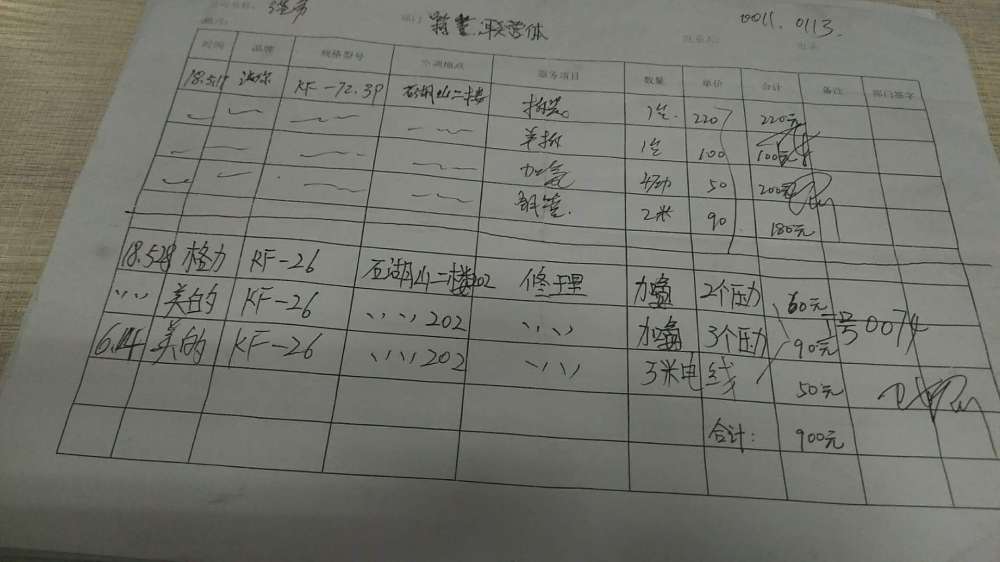 部门 联营体 0011. 0113.
时间 品牌 规格型号 空调地点 服务项目 数量 单价 合计 备注 部门签字
18.5.17 KF-72.3P 石湖山二楼 拆装 1台 220 220元
〃 〃 〃 〃 单拆 1台 100 100元
〃 〃 〃 〃 加氟 4个压力 50 200元
〃 〃 〃 铜管 2米 90 180元
18.528 格力 KF-26 石湖山二楼202 修理 加氟 2个压力 60元
〃 美的 KF-26 〃 202 〃 加氟 3个压力 90元 号0074
6.14 美的 KF-26 〃 202 〃 3米电线 50元
合计: 900元